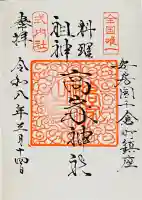 全国唯一
安房国千倉町鎮座
料理
祖神
高家神社
式内社
奉拝
令和八年三月十四日